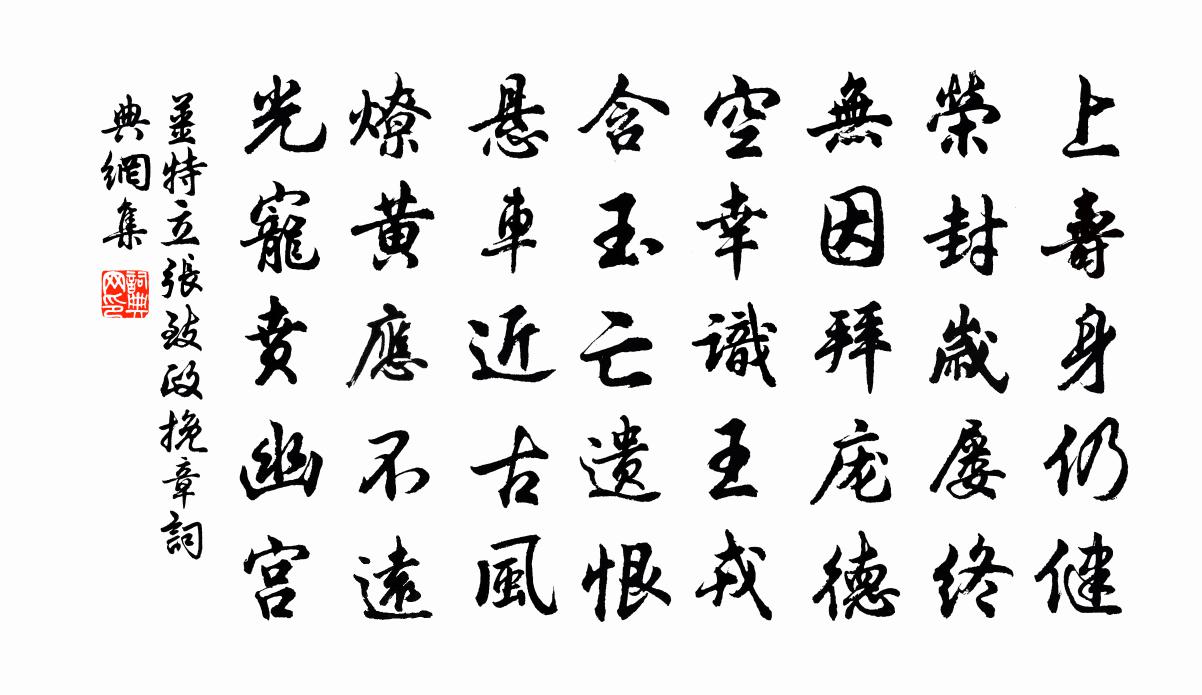 上壽身仍健
榮封歲屡終
無因拜庞德
空幸識王戎
含玉亡遺恨
悬車近古風
燎黃應不遠
光寵賁幽宫
姜特立張致政挽章詞
典網集
詞典
网印